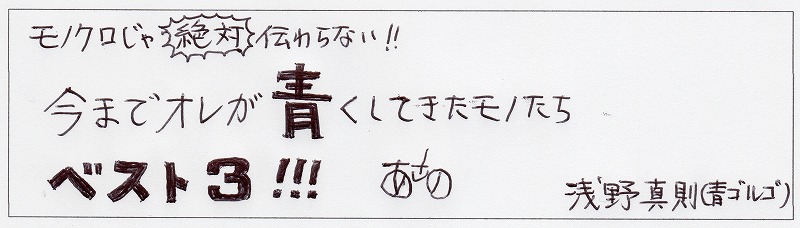 モノクロじゃ絶対伝わらない!!
今までオレが青くしてきたモノたち
ベスト3!!! あさの 浅野真則(青ゴルゴ)